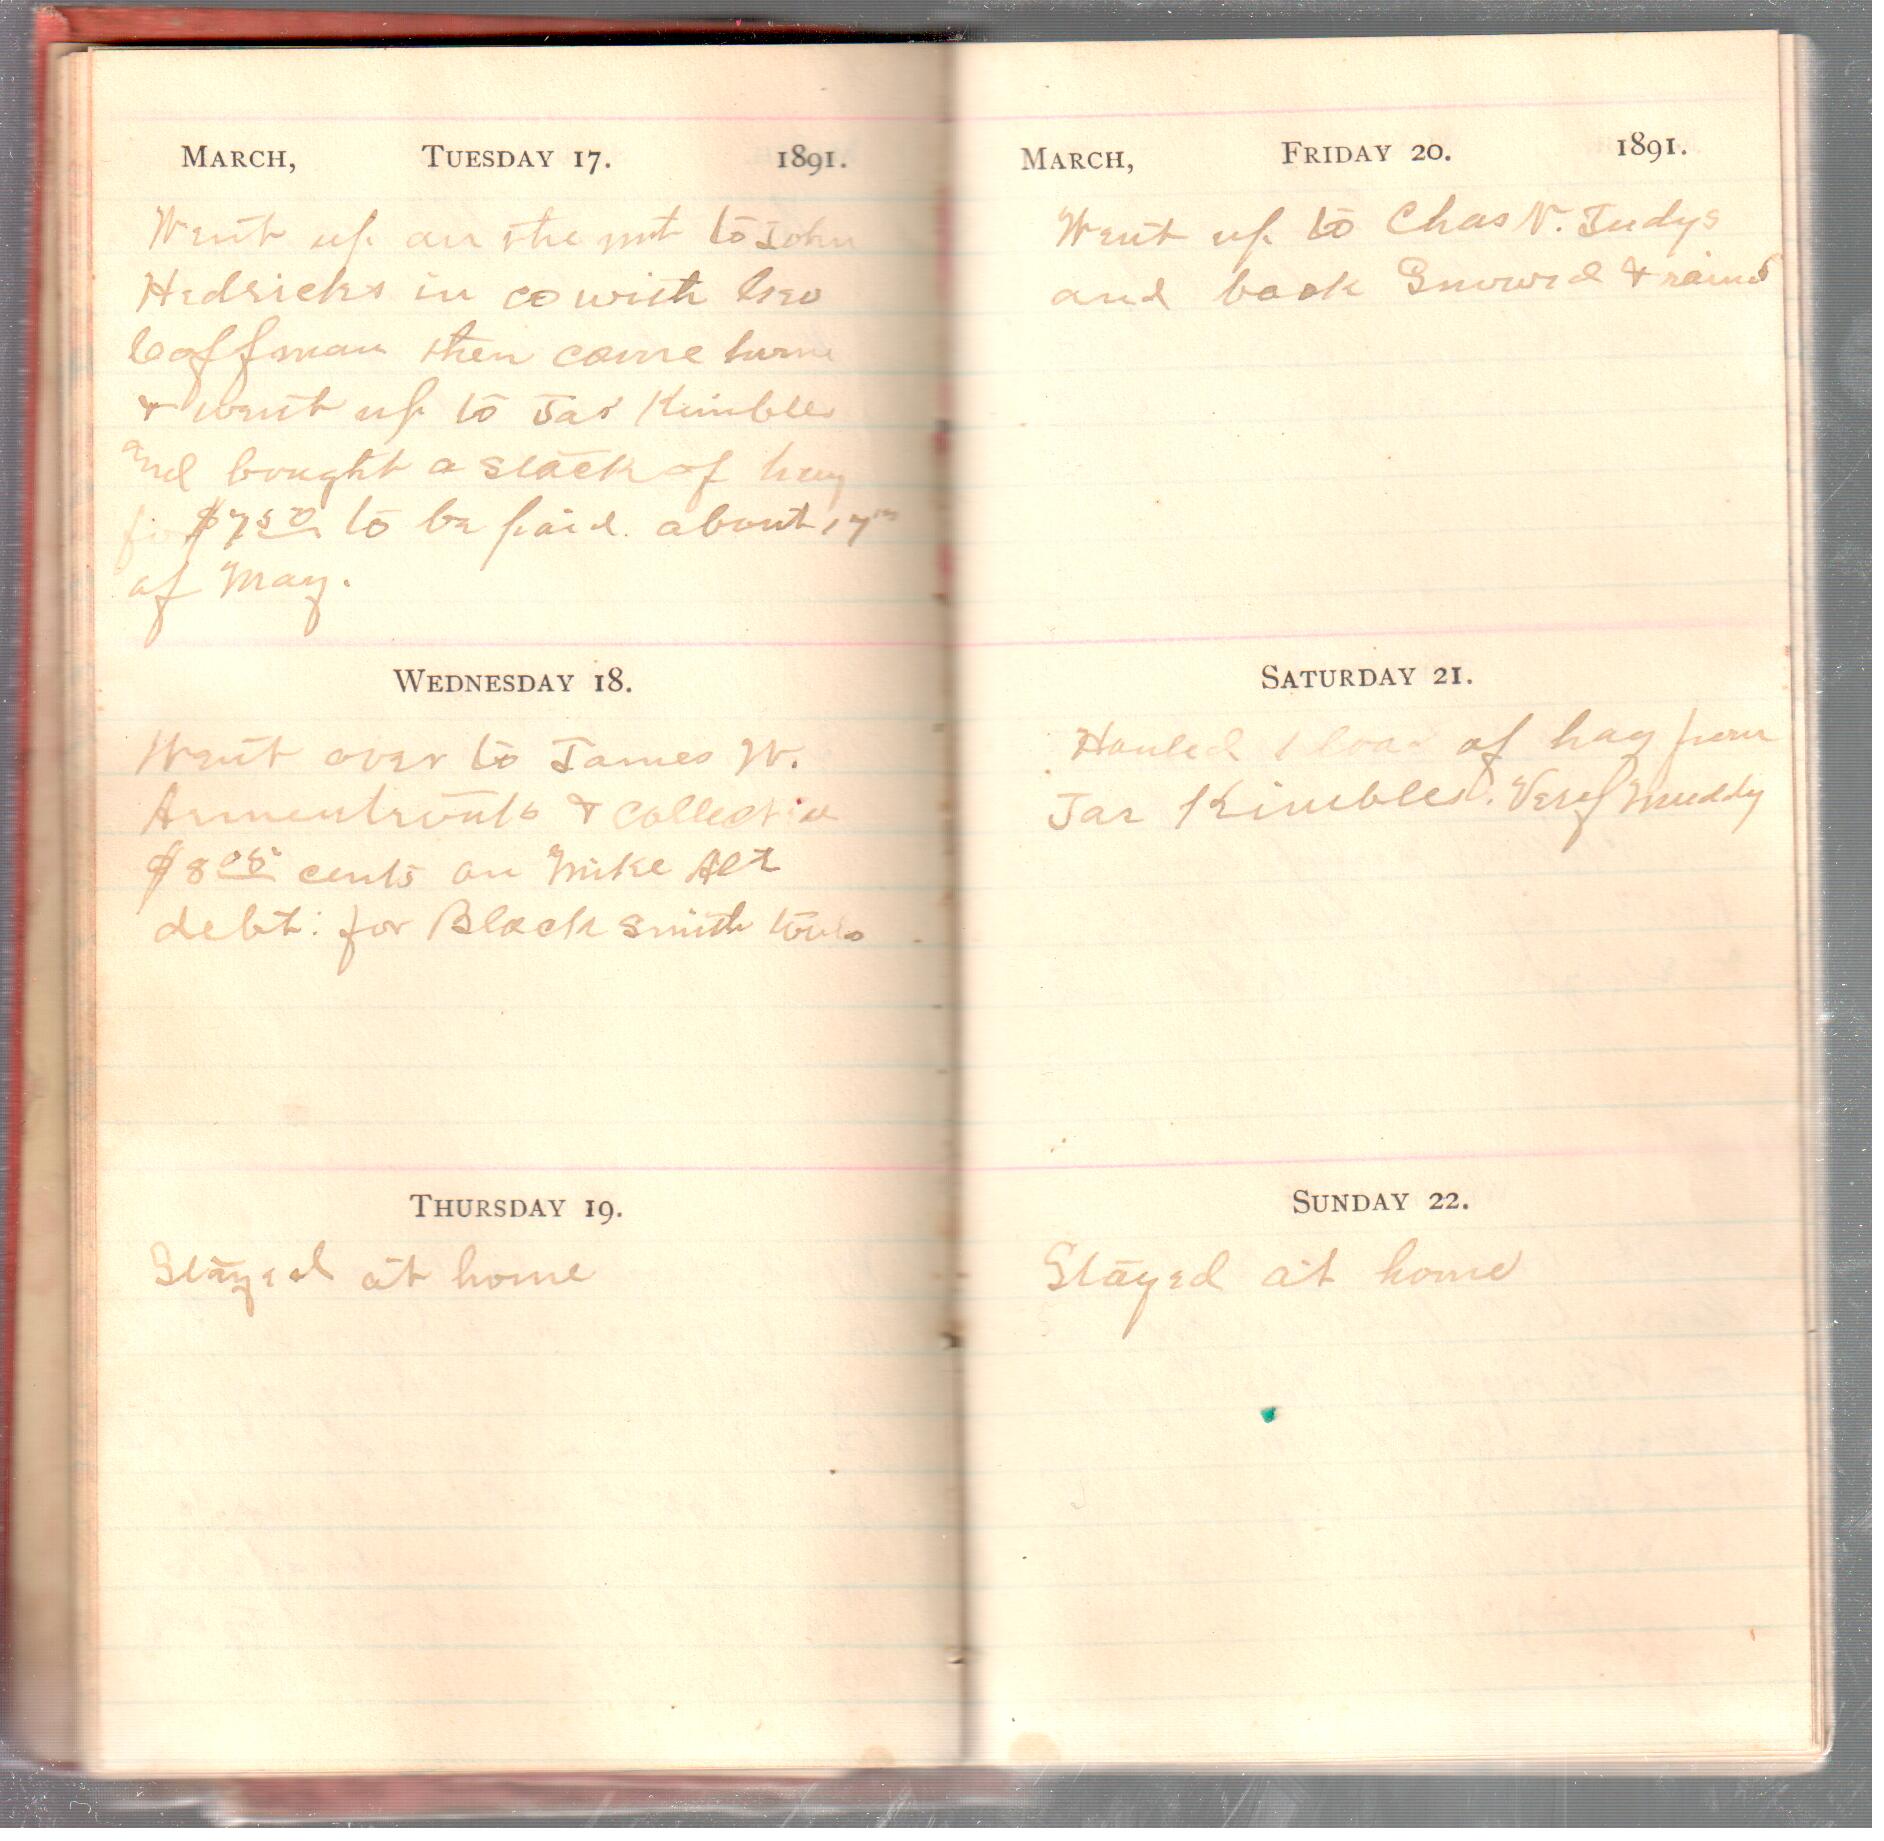 MARCH, TUESDAY 17. 1891.
Went up on the mt to John
Hedricks in co with Geo
Coffman then come home
& went up to Jas Kimbles
and bought a stack of hay
for $7 50 to be paid about 17th
of May.
WEDNESDAY 18.
Went over to James W.
Armentrouts & collect
$8 05 cents on Mike Alt
debt: for Black smith tools
THURSDAY 19.
Stayed at home
MARCH, FRIDAY 20. 1891.
Went up to Chas N. Judys
and back Snowed & rained
SATURDAY 21.
Hauled 1 load of hay from
Jas Kimbles. Very Muddy
SUNDAY 22.
Stayed at home